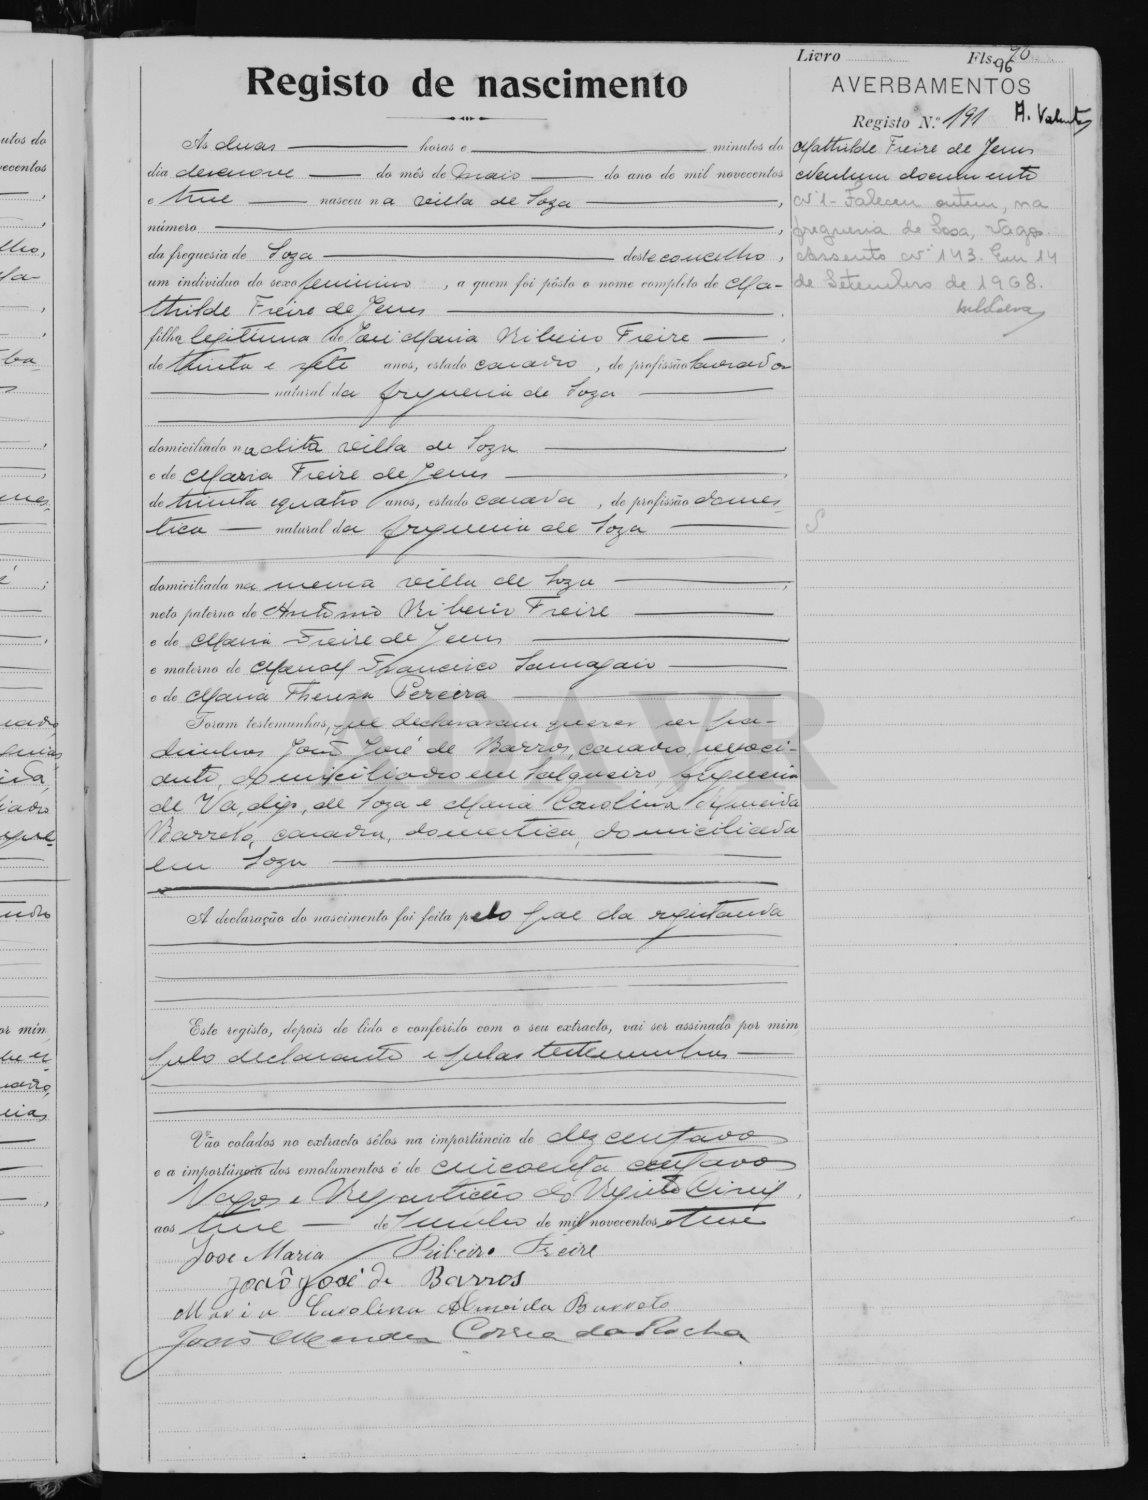 Livro Fls. 96
Registo de nascimento
AVERBAMENTOS
Registo N.º 191 A. Valente
Mathilde Freire de Jesus
Nenhum documento
N.º 1 - Faleceu ontem, na
freguesia de Sosa, Vagos.
Assento N.º 143. Em 14
de Setembro de 1968.
Ás duas horas e minutos do
dia desenove do mês de Maio do ano de mil novecentos
e treze nasceu na villa de Soza ,
número ,
da freguesia de Soza deste concelho,
um indivíduo do sexo feminino, a quem foi pôsto o nome completo de Ma-
thilde Freire de Jesus
filha legitima de José Maria Ribeiro Freire ,
de trinta e sete anos, estado casado, de profissão lavrador
natural da freguesia de Soza
domiciliado na dita villa de Soza ,
e de Maria Freire de Jesus ,
de trinta e quatro anos, estado casada, de profissão domes-
tica natural da freguesia de Soza
domiciliada na mesma villa de Soza ,
neto paterno de António Ribeiro Freire
e de Maria Freire de Jesus
e materno de Manoel Francisco Samagaio
e de Maria Thereza Pereira
Foram testemunhas, que declararam querer ser pa-
drinhos João José de Barros, casado, negoci-
ante, domiciliado em Salgueiro, freguesia
de Va, digo, de Soza e Maria Carolina Almeida
Barreto, casada, domestica, domiciliada
em Soza
A declaração do nascimento foi feita pelo pae da registanda
Este registo, depois de lido e conferido com o seu extracto, vai ser assinado por mim
pelo declarante e pelas testemunhas
Vão colados no extracto sêlos na importância de dez centavos
e a importância dos emolumentos é de cincoenta centavos
Vagos e Repartição do Registo Civil,
aos treze de Junho de mil novecentos e treze
José Maria Ribeiro Freire
João José de Barros
Maria Carolina Almeida Barreto
João Mendes Correa da Rocha
ADAVR